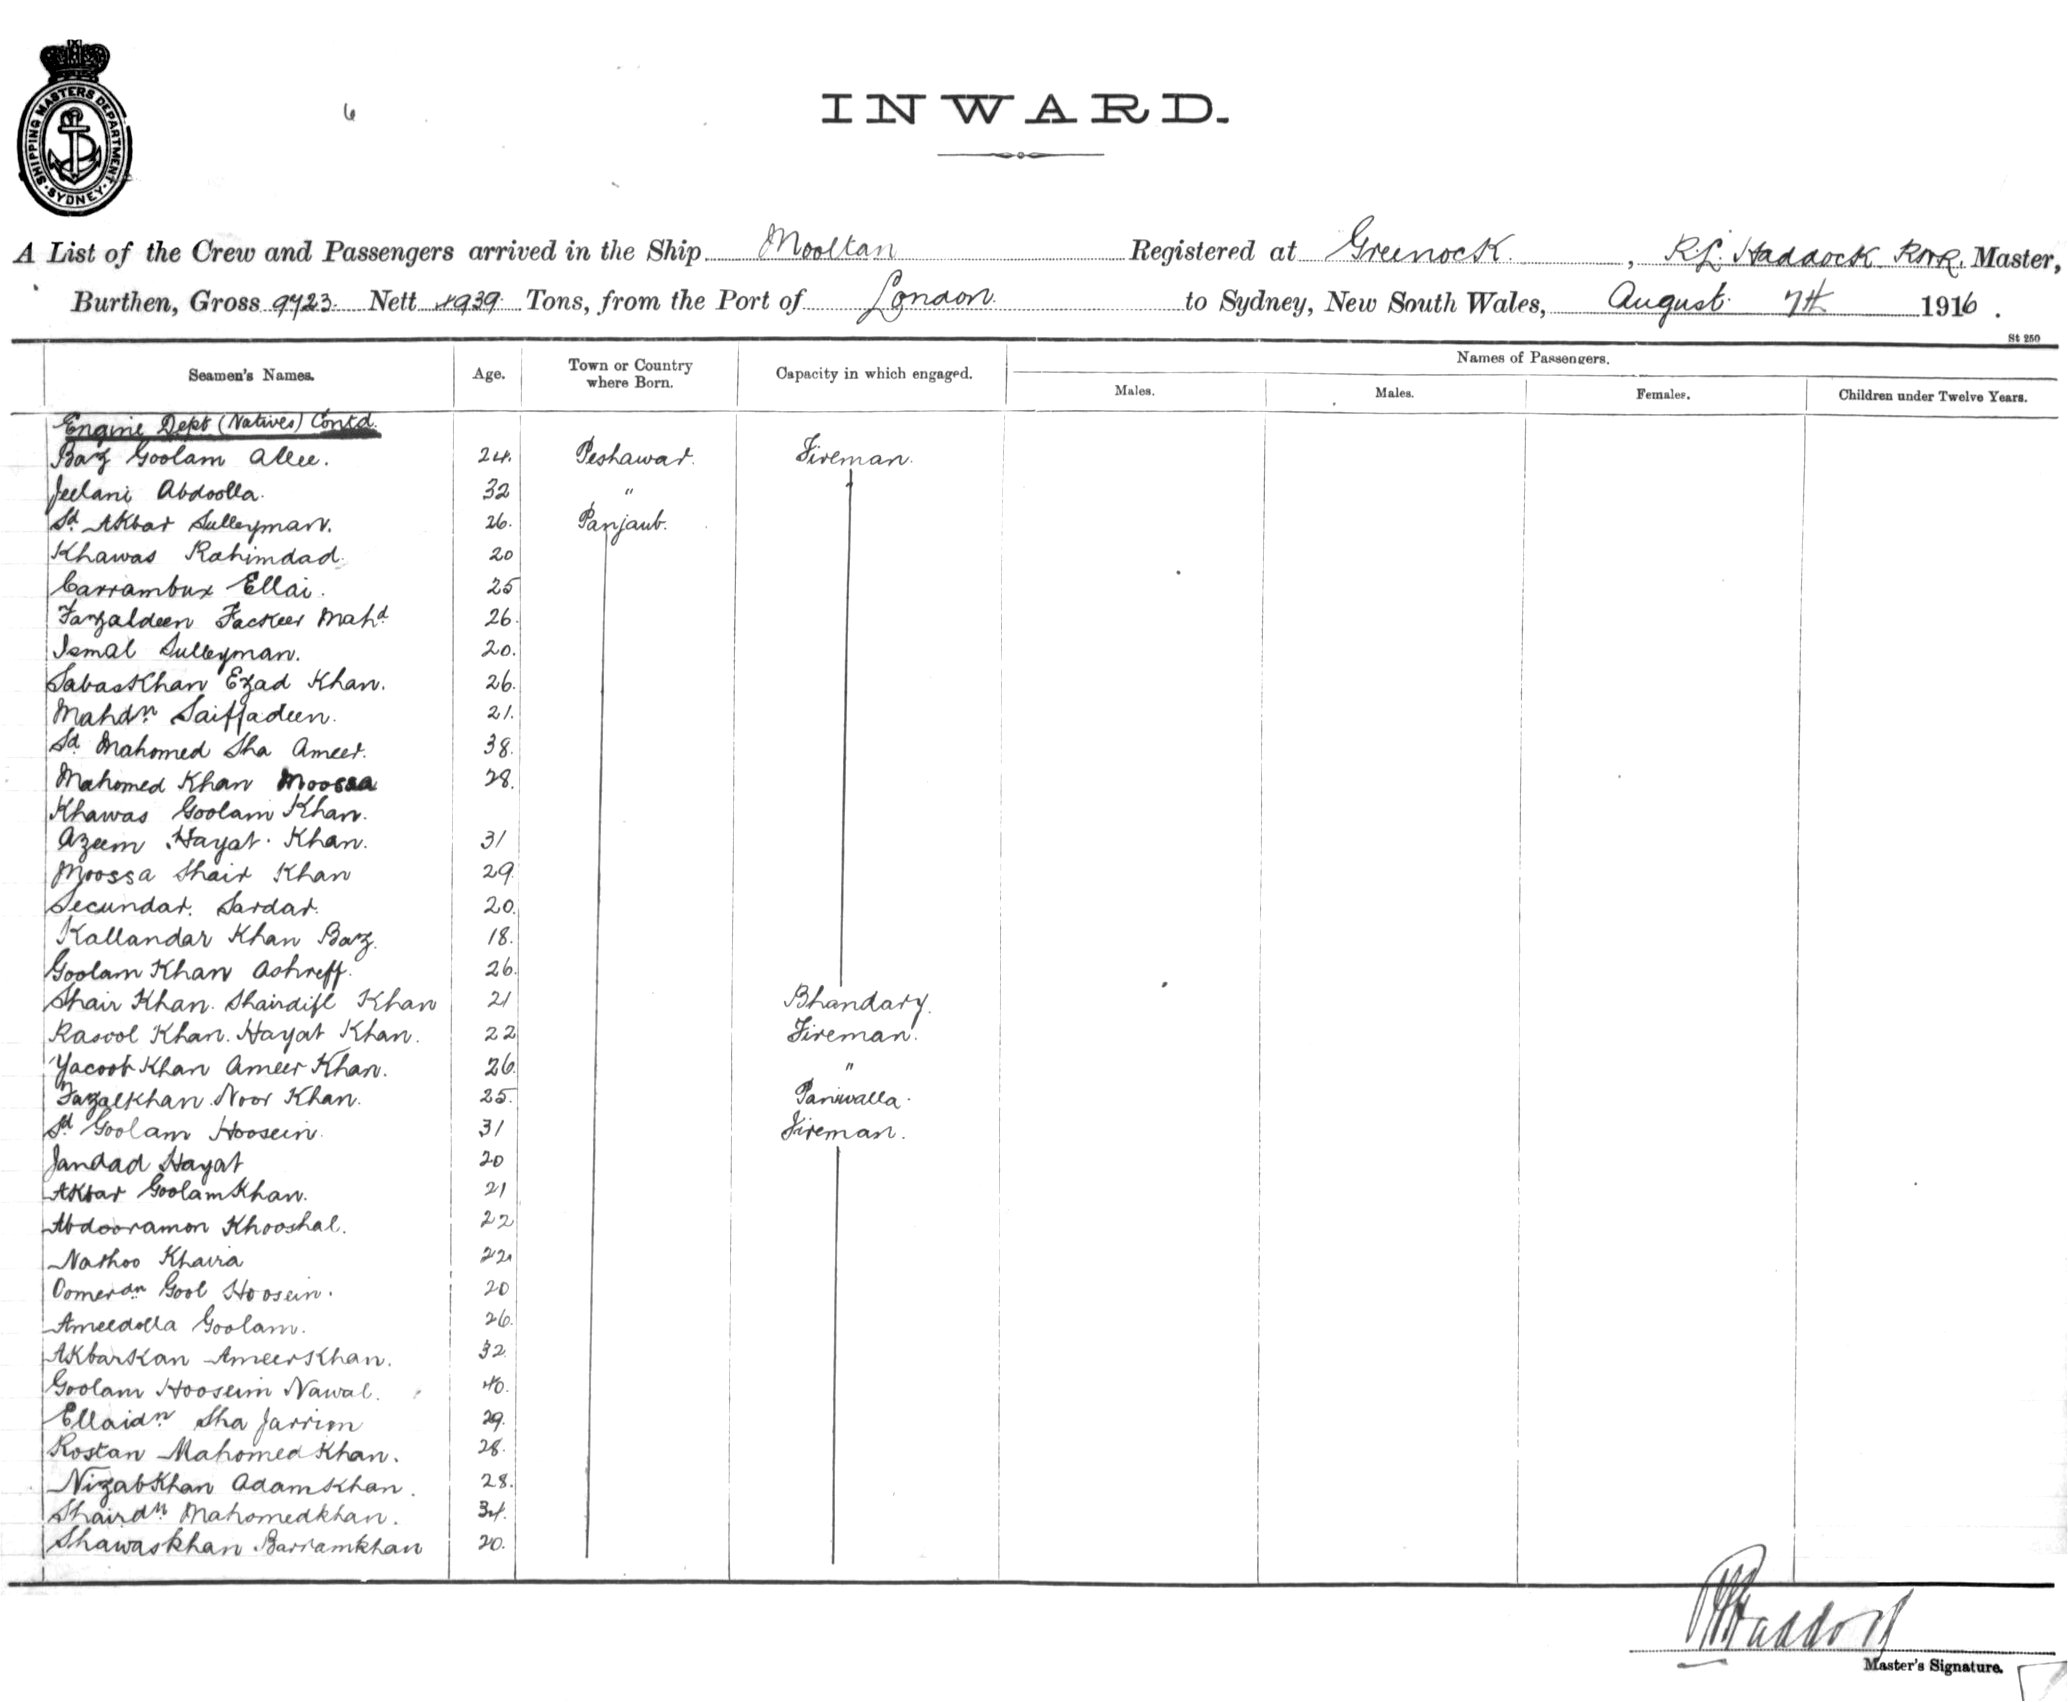 SHIPPING MASTERS DEPARTMENT · SYDNEY ·
6
INWARD.
A List of the Crew and Passengers arrived in the Ship Mooltan Registered at Greenock, R.L. Haddock RNR. Master,
Burthen, Gross 9723. Nett 4939. Tons, from the Port of London. to Sydney, New South Wales, August 7th 1916.
St 250
Seamen's Names. Age. Town or Country where Born. Capacity in which engaged. Names of Passengers.
Males. Males. Females. Children under Twelve Years.
Engine Dept (Natives) Contd.
Baz Goolam Allee. 24. Peshawar. Fireman.
Jeelani Abdoolla. 32 "
Sd. Akbar Sulleyman. 26. Panjaub.
Khawas Rahimdad. 20
Carrambux Ellai. 25
Fazaldeen Fackeer Mahd 26.
Ismal Sulleyman. 20.
Sabaskhan Ezad Khan. 26.
Mahdn Saiffadeen. 21.
Sd. Mahomed Sha Ameer. 38.
Mahomed Khan Moossa 28.
Khawas Goolam Khan.
Azeem Hayat Khan. 31
Moossa Shair Khan 29
Secundar. Sardar. 20.
Kallandar Khan Baz. 18.
Goolam Khan Ashreff. 26.
Shair Khan. Shairdil Khan 21 Bhandary.
Rasool Khan. Hayat Khan. 22 Fireman.
Yacoob Khan Ameer Khan. 26. "
Fazalkhan Noor Khan. 25. Paniwalla.
Sd. Goolam Hoosein. 31 Fireman.
Jandad Hayat 20
Akbar Goolam Khan. 21
Abdooramon Khooshal. 22
Nathoo Khaira 22
Oomerdn Gool Hoosein. 20
Ameedolla Goolam. 26.
Akbarkan Ameerkhan. 32
Goolam Hoosein Nawal. 40.
Ellaidn Sha Jarrim 29.
Rostan Mahomed Khan. 28.
Nizabkhan Adamkhan. 28.
Shairdn Mahomedkhan. 34.
Shawaskhan Barramkhan 20.
RL Haddock
Master's Signature.